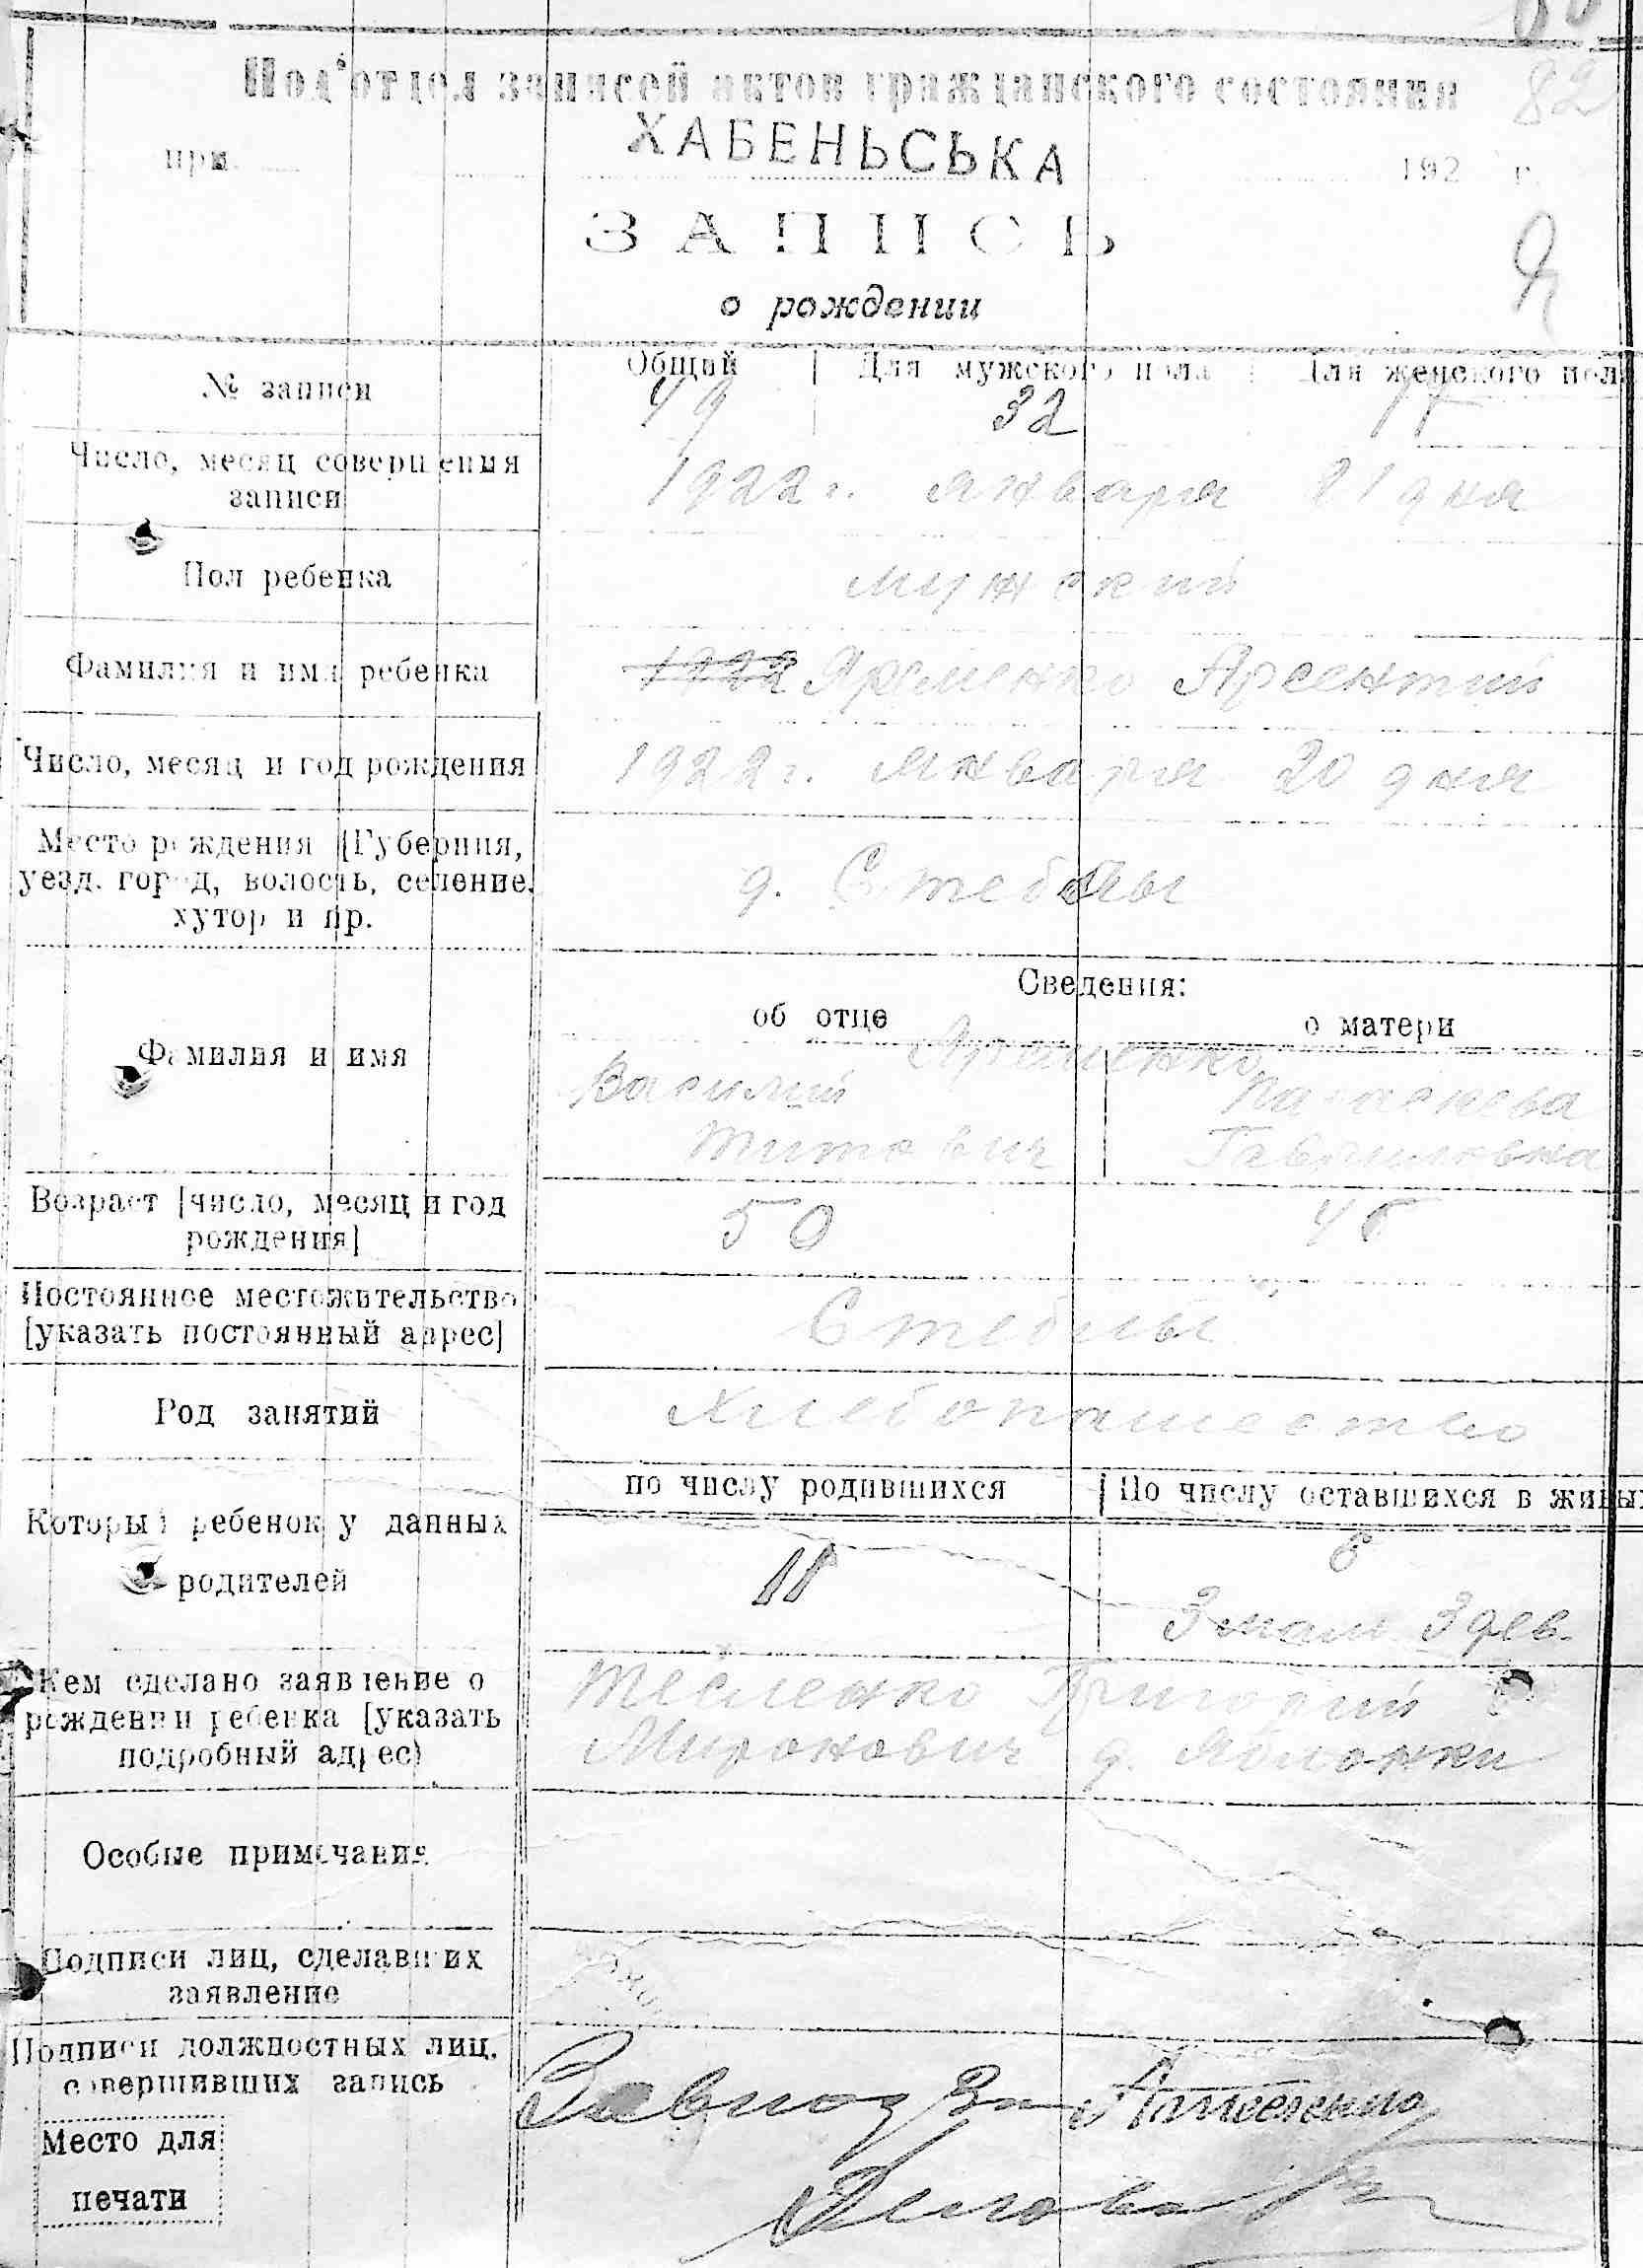 82
Под'отдел записей актов гражданского состояния
при. ХАБЕНЬСЬКА 192 г.
ЗАПИСЬ
о рождении
№ записи
Общий Для мужского пола Для женского пола
49 32 17
Число, месяц совершения записи
1922 г. января 21 дня
Пол ребенка
мужский
Фамилия и имя ребенка
1222 Яременко Арсентий
Число, месяц и год рождения
1922 г. января 20 дня
Место рождения [Губерния,
уезд. город, волость, селение,
хутор и пр.
д. Стебли
Сведения:
об отце о матери
Фамилия и имя
Яременко
Василий Параскева
Титович Гавриловна
Возраст [число, месяц и год
рождения]
50 45
Постоянное местожительство
[указать постоянный адрес]
Стеблы
Род занятий
Хлебопашество
по числу родившихся По числу оставшихся в живых
Который ребенок у данных
родителей
11 6
3 мал 3 дев.
Кем сделано заявление о
рождении ребенка [указать
подробный адрес)
Тесленко Григорий
Миронович д. Яблонки
Особые примечания
Подписи лиц, сделавших
заявление
Подписи должностных лиц,
совершивших запись
Место для
печати